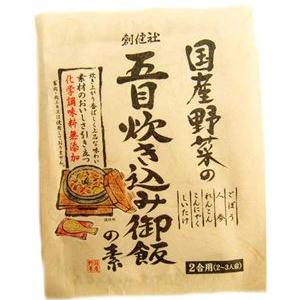 創健社
国産野菜の
五目炊き込み御飯
の素
炊き上がり香ばしく上品な味わい
素材のおいしさ引き立つ
化学調味料無添加
ごぼう
人参
れんこん
こんにゃく
しいたけ
2合用(2〜3人前)